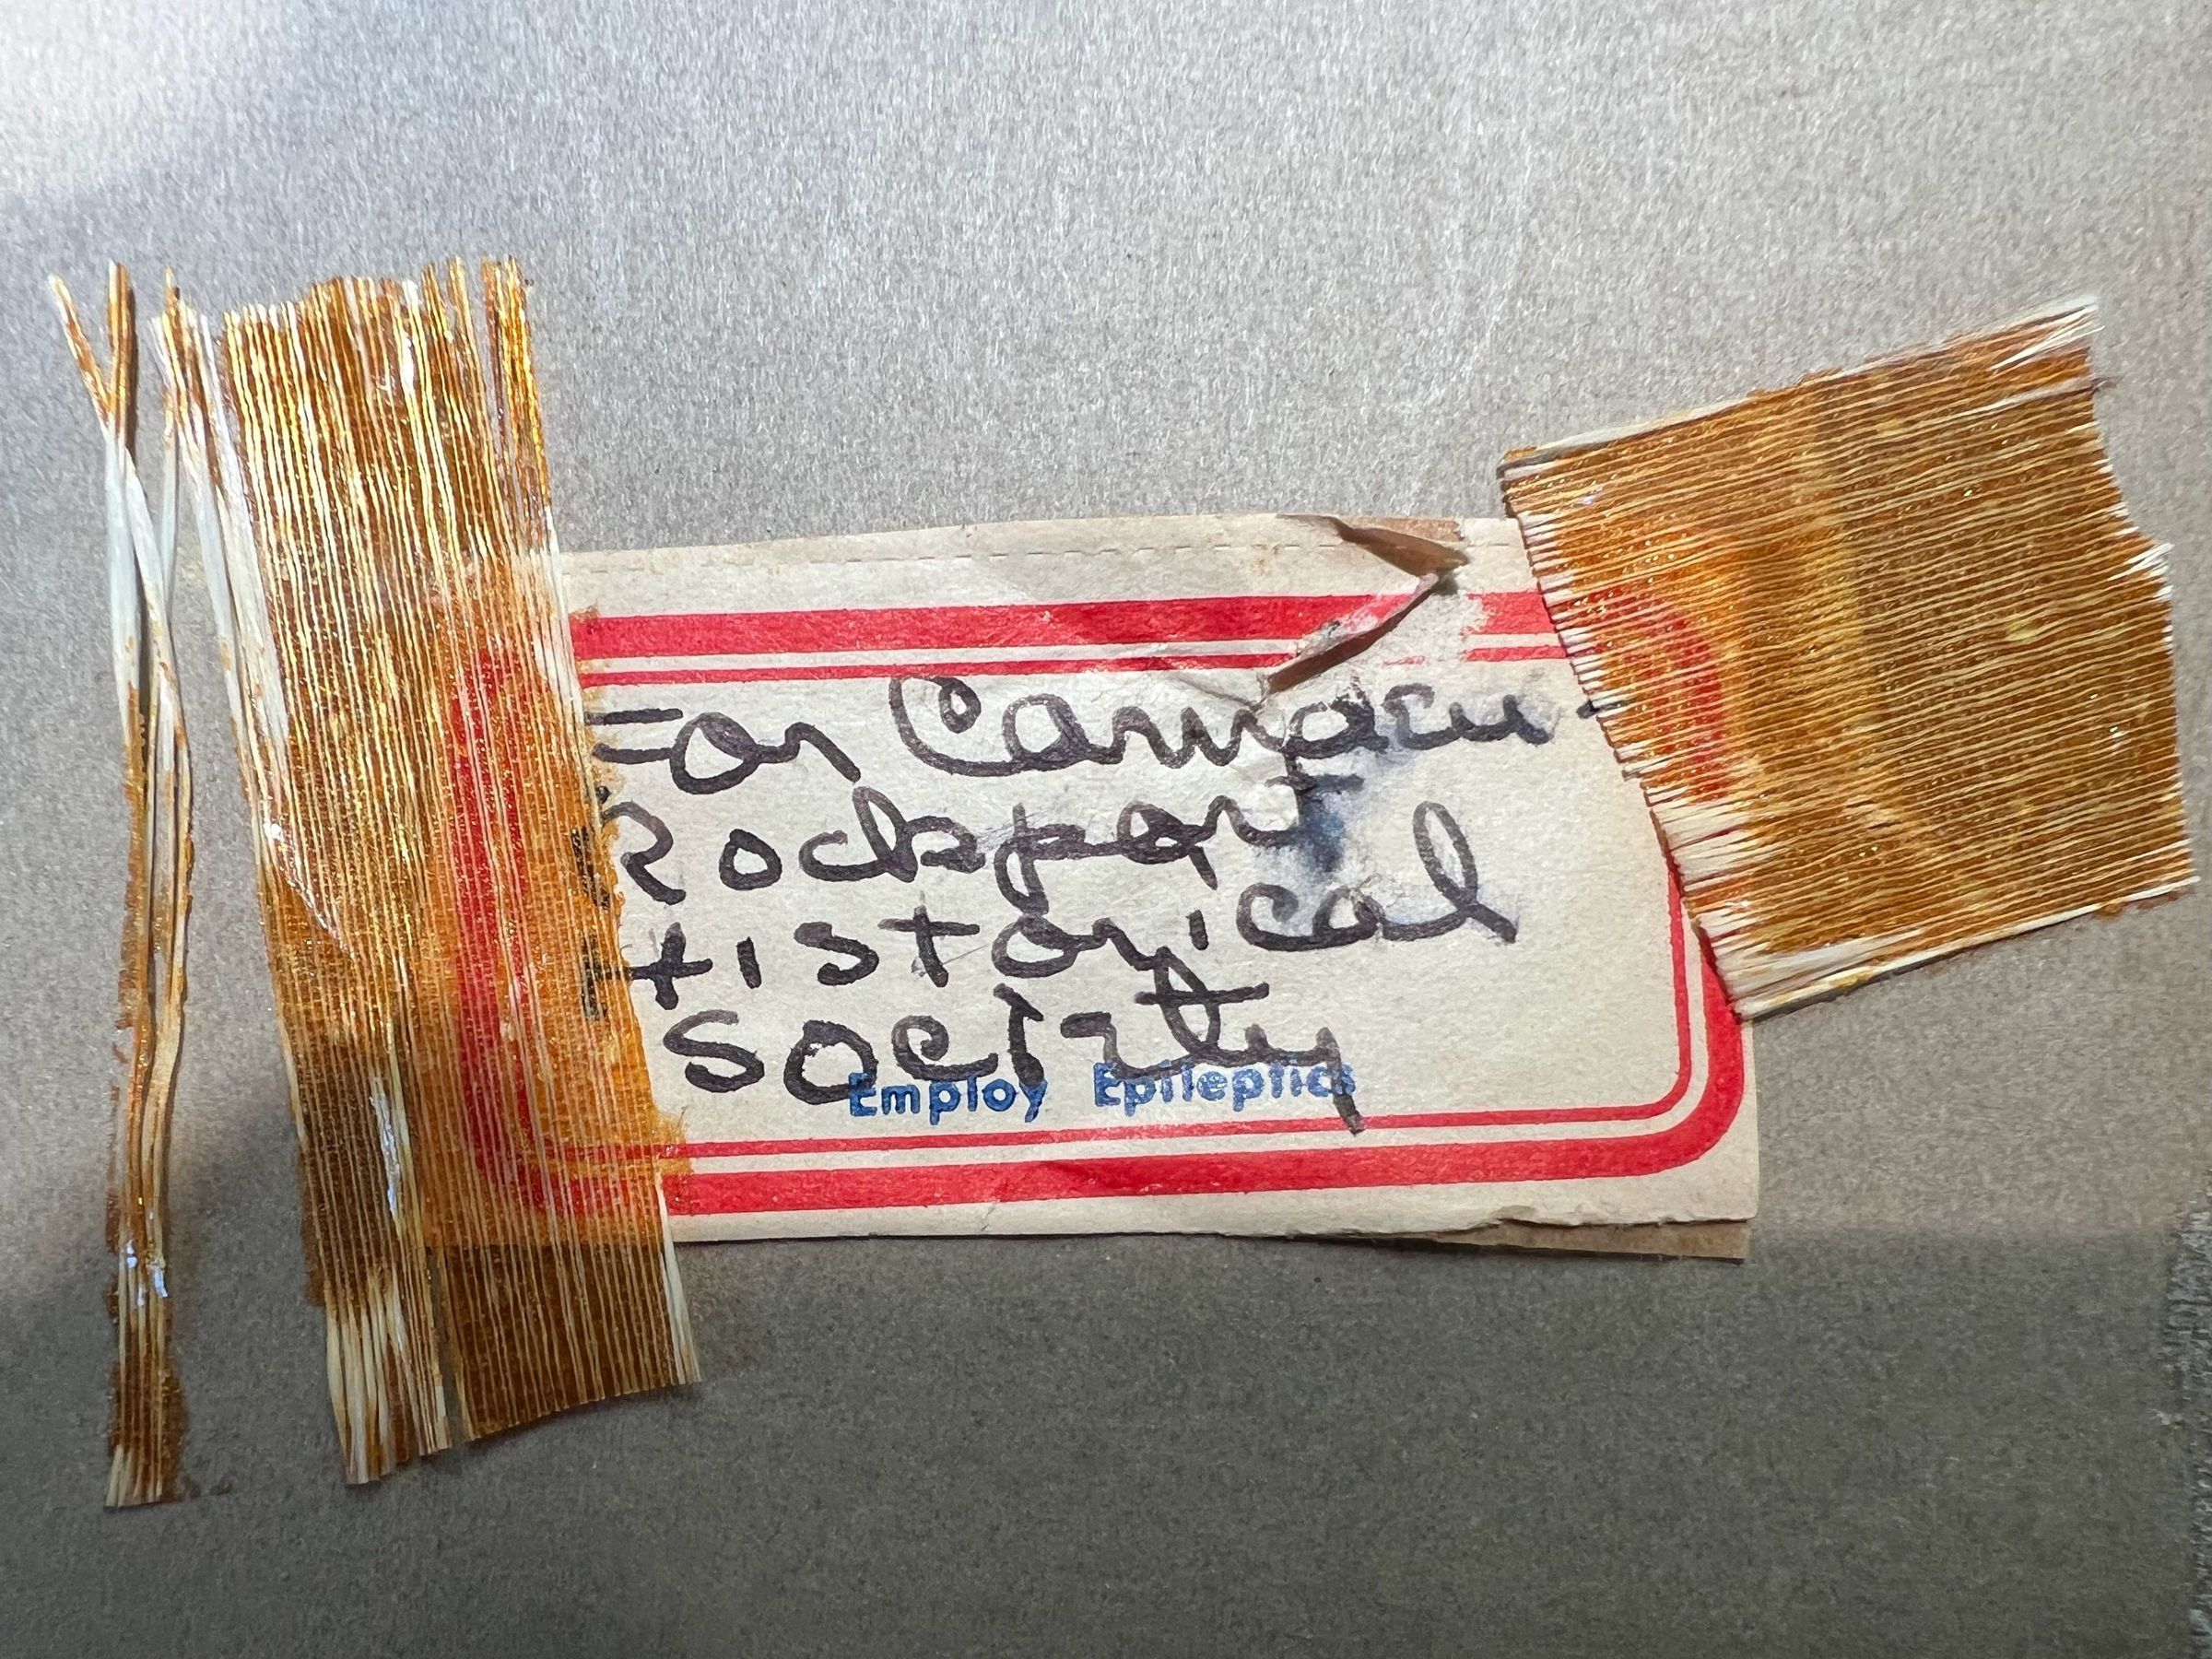 For Camden -
Rockport
Historical
Society
Employ Epileptics